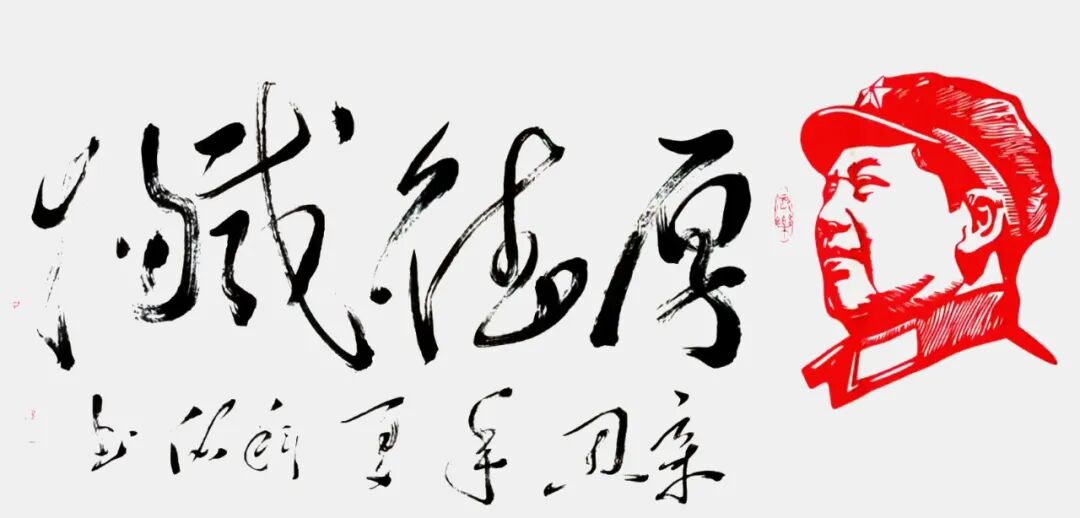 厚德载物
辛丑年夏 书